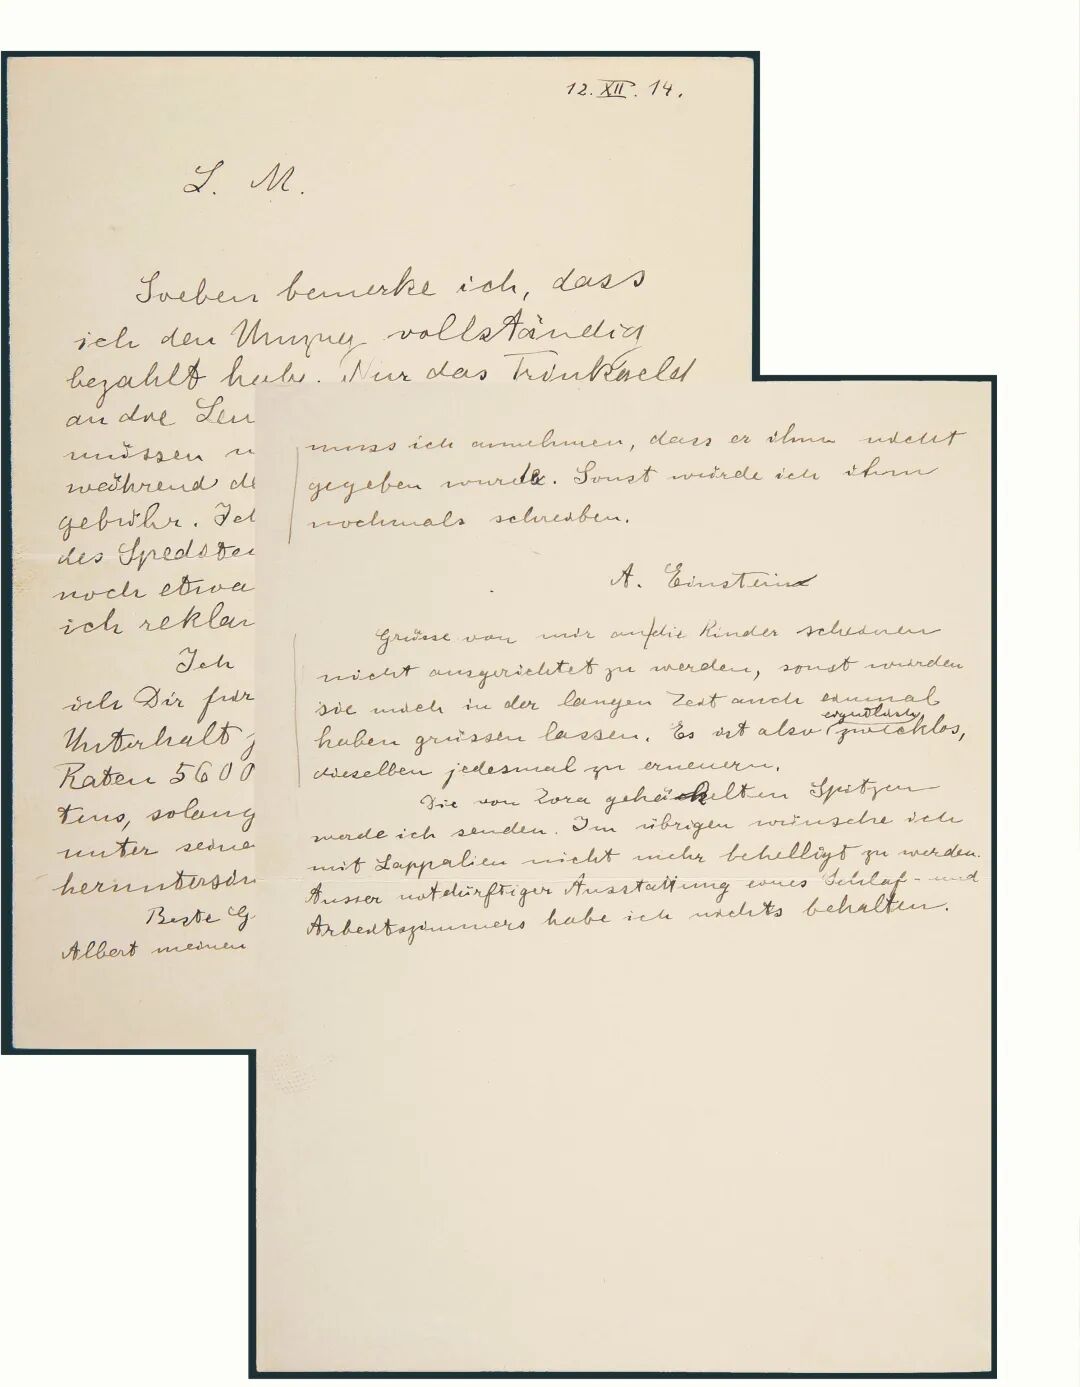 12. XII. 14.
L. M.
Soeben bemerke ich, dass
ich den Umzug vollständig
bezahlt habe. Nur das Trinkgeld
an die Leu
müssen
während de
gebühr. Ich
des Spediteu
noch etwa
ich reklam
Ich
ich Dir für
Unterhalt
Raten 5600
tens, solang
unter seine
heruntersin
Beste G
Albert meinen
muss ich annehmen, dass er ihm nicht
gegeben wurde. Sonst würde ich ihm
nochmals schreiben.
A. Einstein
Grüsse von mir an die Kinder scheinen
nicht ausgerichtet zu werden, sonst würden
sie mich in der langen Zeit auch einmal
haben grüssen lassen. Es ist also eigentlich zwecklos,
dieselben jedesmal zu erneuern.
Die von Zora gehäkelten Spitzen
werde ich senden. Im übrigen wünsche ich
mit Lappalien nicht mehr behelligt zu werden.
Ausser notdürftiger Ausstattung eines Schlaf- und
Arbeitszimmers habe ich nichts behalten.